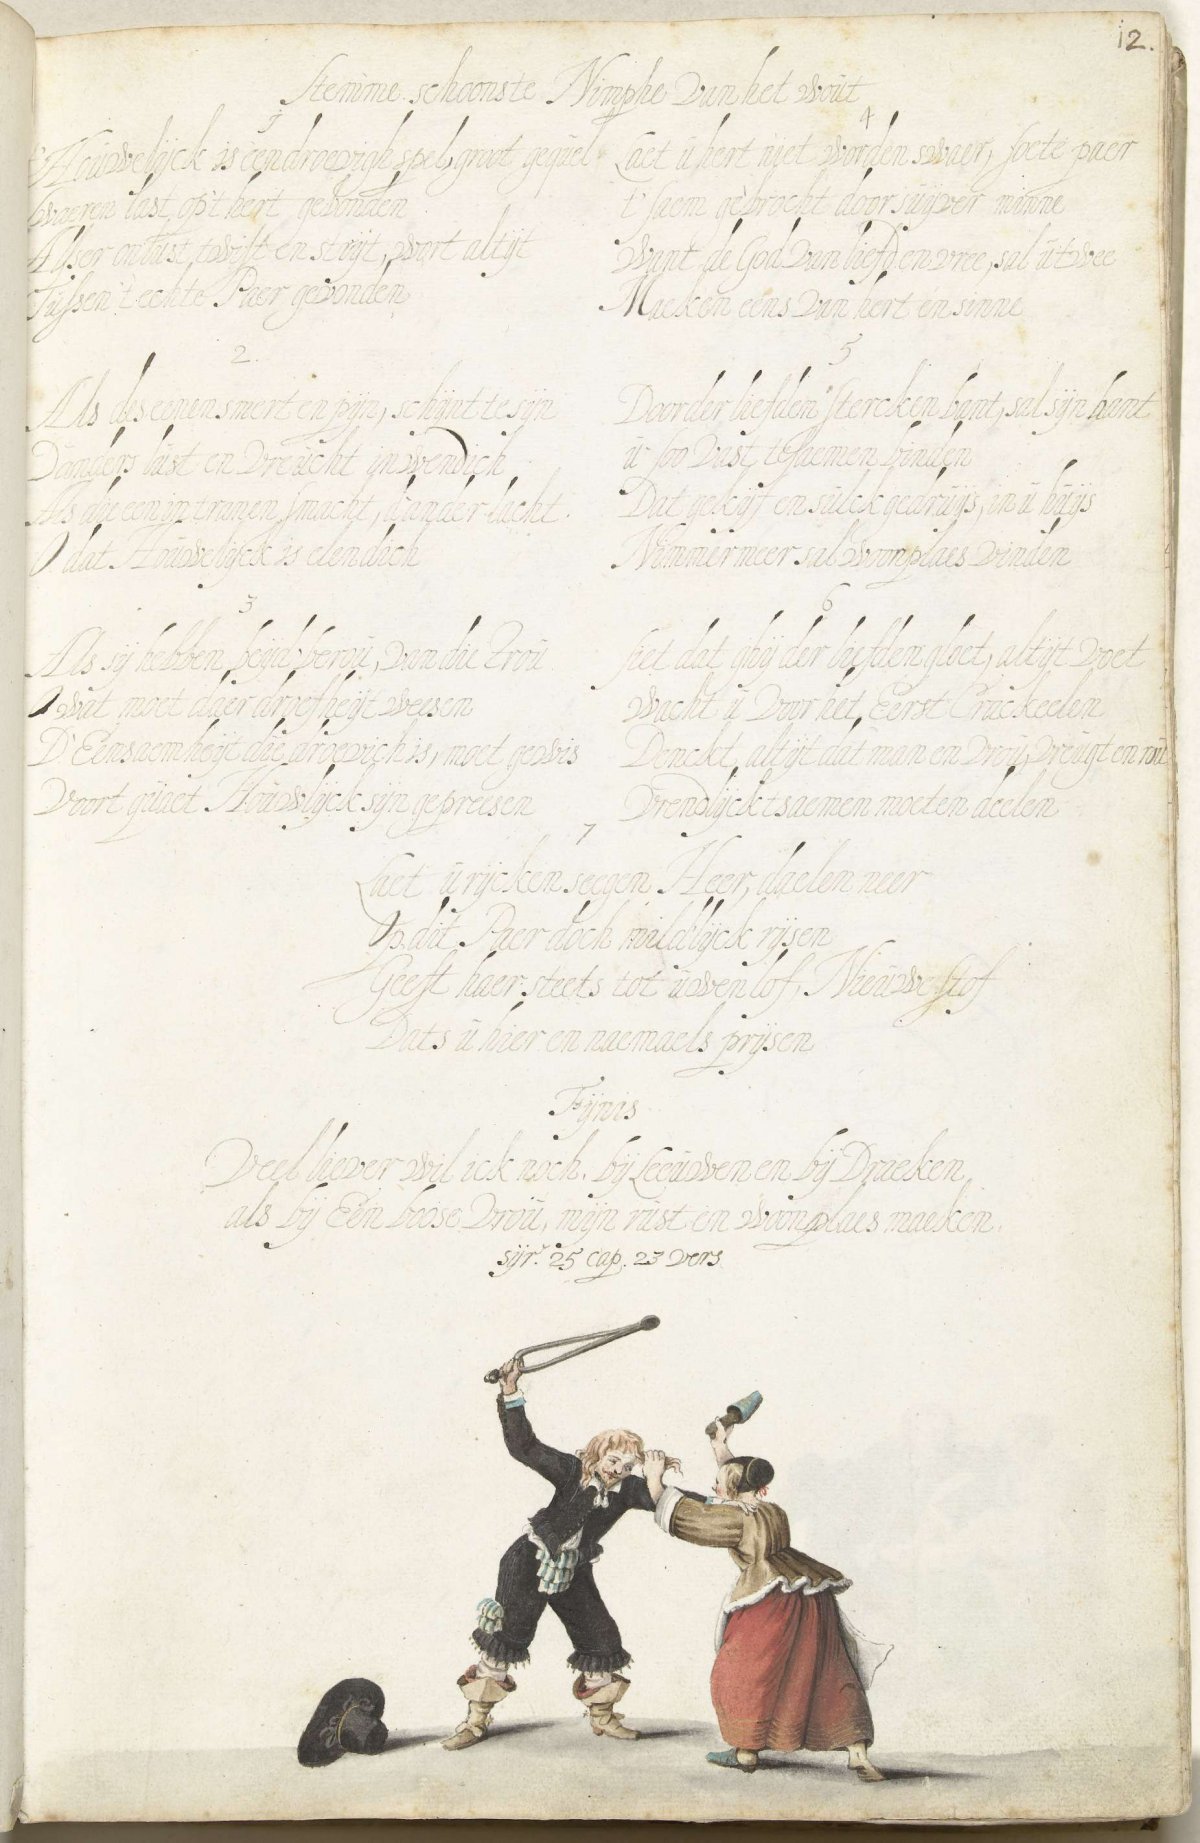 12.
Stemme schoonste Nimphe van het wout
1
t' Houwelijck is een droevigh spel, groot gequel
swaeren last, op't hert gebonden
Alsser onlust, twist en strijt, wort altijt
Tussen 't echte Paer gevonden
2.
Als des eenen smert en pijn, schijnt te sijn
D'anders lust en vreucht inwendich
Als die een in tranen smacht, d'ander lacht
O dat Houwelijck is elendich
3
Als sij hebben beijd berou, van die Trou
O wat moet daer droefheijt weesen
D' Eensaemheijt die droevich is, moet gewis
Voort quaet Houwlijck sijn gepreesen
4
Laet u hert niet worden swaer, soete paer
t' saem gebrocht door suijver minne
Want de God van liefd en vree, sal ut wee
Maeken eens van hert en sinne
5
Door der liefden stercken bant, sal sijn hant
u soo vast, tesaemen binden
Dat gekijf en sulck gedruijs, in u huijs
Nimmermeer sal woonplaes vinden
6
siet dat ghij der liefden gloet, altijt voet
wacht u voor het Eerst Crackeelen
Denckt altijt dat man en vrou, vreugt en rou
Vrendlijck tsaemen moeten deelen
7
Laet u rijcken seegen Heer, daelen neer
Op dit Paer doch mildlijck rijsen
Geeft haer steets tot uwen lof, Nieuwe stof
Dats u hier en naemaels prijsen
Fijnis
Veel liever wil ick noch, bij Leeuwen en bij Draeken
als bij Een boose vrou, mijn rust en woonplaes maeken.
sijr. 25 cap. 23 vers